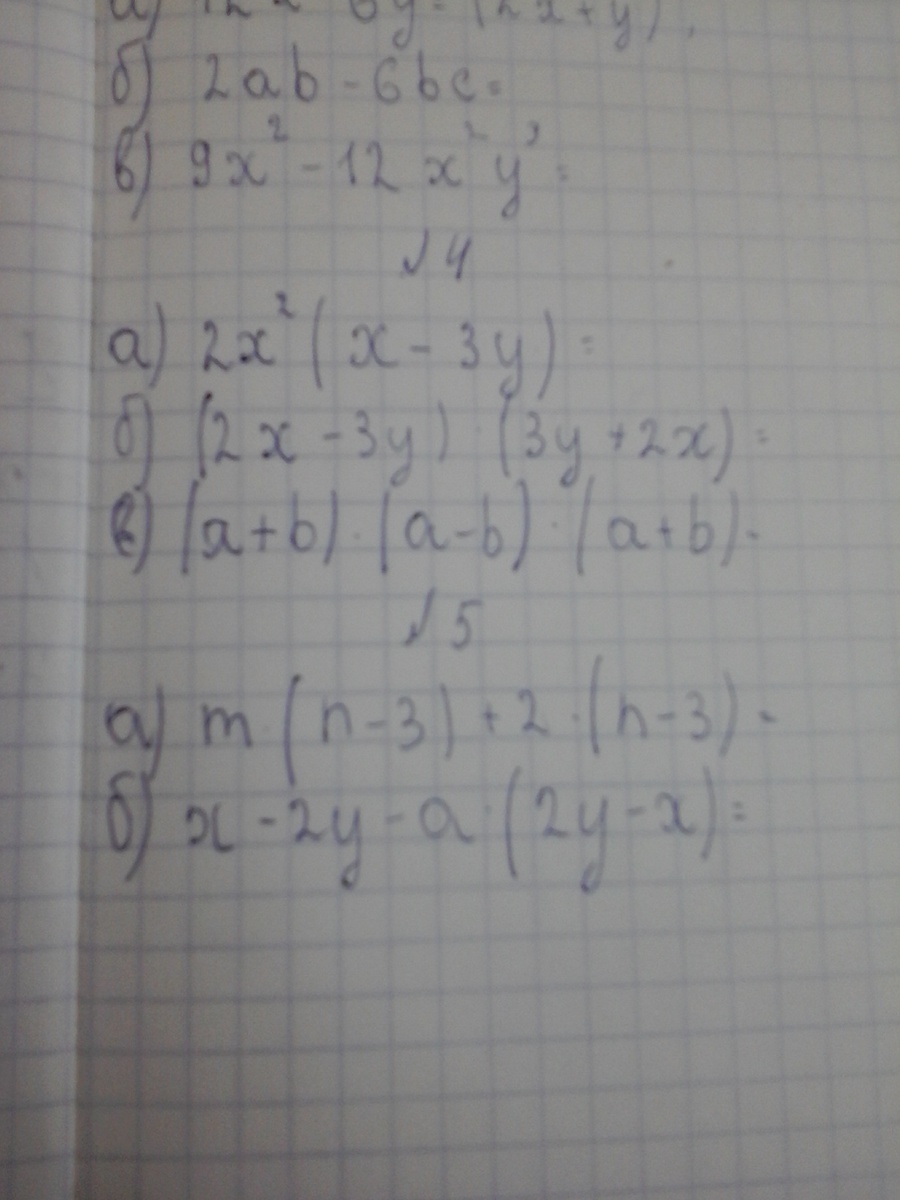 а) 12x 6y = (2x+y),
б) 2ab - 6bc =
в) 9x² - 12x²y³ =
√4
а) 2x²(x - 3y) =
б) (2x - 3y)·(3y + 2x) =
в) (a+b)·(a-b)·(a+b) =
√5
а) m·(n-3) + 2·(n-3) =
б) x - 2y - a·(2y - x) =